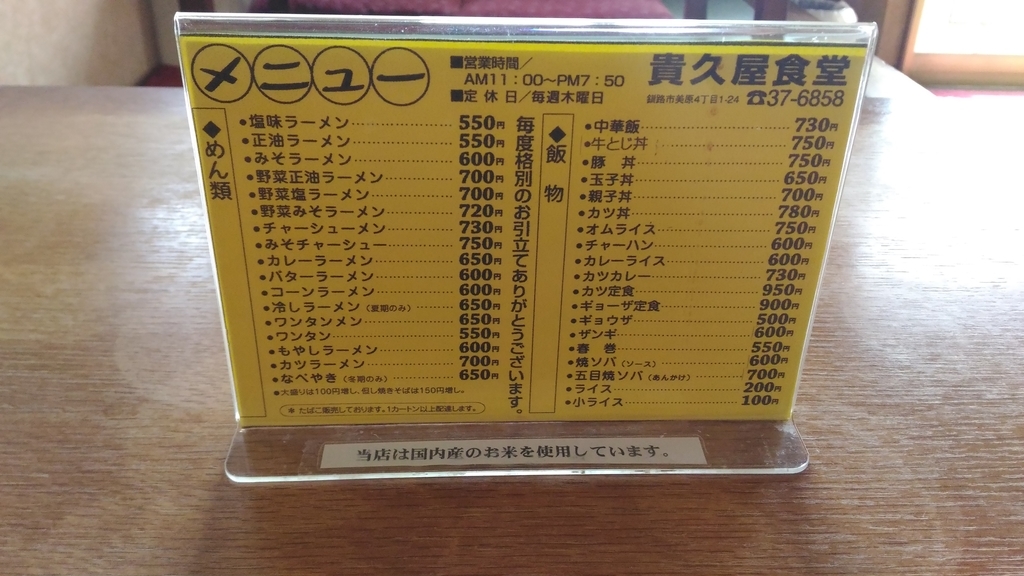 メニュー
■営業時間/
AM11:00〜PM7:50
■定休日/毎週木曜日
貴久屋食堂
釧路市美原4丁目1-24 ☎37-6858
◆めん類
●塩味ラーメン 550円
●正油ラーメン 550円
●みそラーメン 600円
●野菜正油ラーメン 700円
●野菜塩ラーメン 700円
●野菜みそラーメン 720円
●チャーシューメン 730円
●みそチャーシュー 750円
●カレーラーメン 650円
●バターラーメン 600円
●コーンラーメン 600円
●冷しラーメン(夏期のみ) 650円
●ワンタンメン 650円
●ワンタン 550円
●もやしラーメン 600円
●カツラーメン 700円
●なべやき(冬期のみ) 650円
●大盛りは100円増し、但し焼きそばは150円増し。
※ たばこ販売しております。1カートン以上配達します。
毎度格別のお引立てありがとうございます。
◆飯物
●中華飯 730円
●牛とじ丼 750円
●豚丼 750円
●玉子丼 650円
●親子丼 700円
●カツ丼 780円
●オムライス 750円
●チャーハン 600円
●カレーライス 600円
●カツカレー 730円
●カツ定食 950円
●ギョーザ定食 900円
●ギョウザ 500円
●ザンギ 600円
●春巻 550円
●焼ソバ(ソース) 600円
●五目焼ソバ(あんかけ) 700円
●ライス 200円
●小ライス 100円
当店は国内産のお米を使用しています。